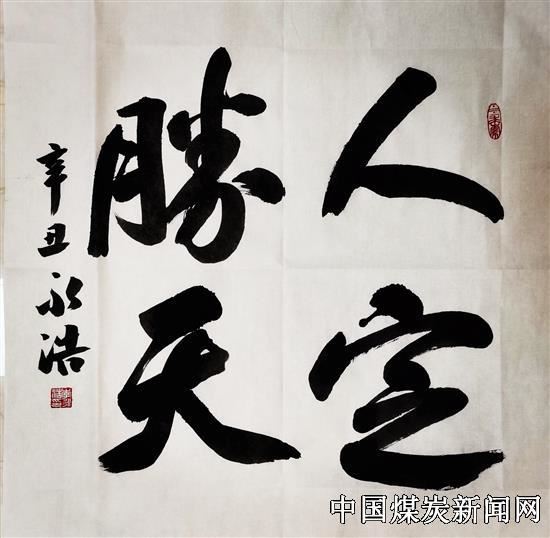 人定
勝天
辛丑永浩
中国煤炭新闻网